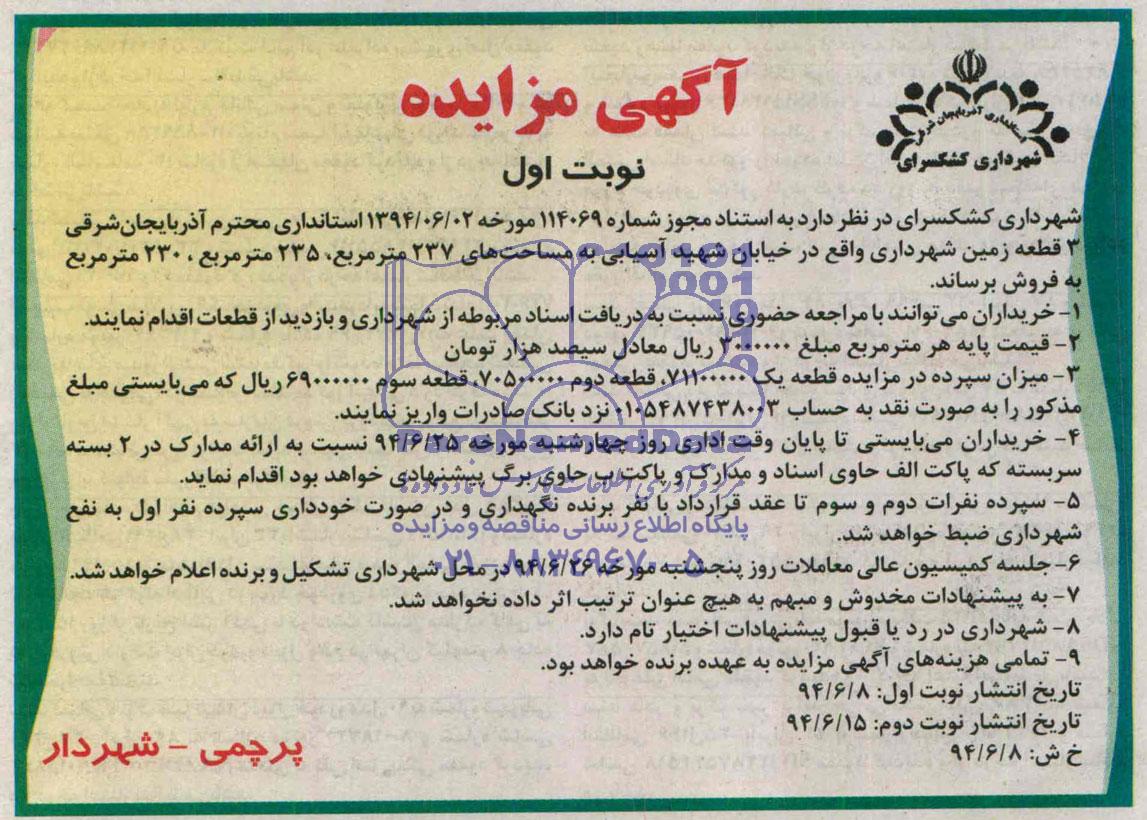 استانداری آذربایجان شرقی
شهرداری کشکسرای
آگهی مزایده
نوبت اول
شهرداری کشکسرای در نظر دارد به استناد مجوز شماره ۱۱۴۰۶۹ مورخه ۱۳۹۴/۰۶/۰۲ استانداری محترم آذربایجان‌شرقی
۳ قطعه زمین شهرداری واقع در خیابان شهید آسیابی به مساحت‌های ۲۳۷ مترمربع، ۲۳۵ مترمربع ، ۲۳۰ مترمربع
به فروش برساند.
۱- خریداران می‌توانند با مراجعه حضوری نسبت به دریافت اسناد مربوطه از شهرداری و بازدید از قطعات اقدام نمایند.
۲- قیمت پایه هر مترمربع مبلغ ۳۰۰۰۰۰۰ ریال معادل سیصد هزار تومان
۳- میزان سپرده در مزایده قطعه یک ۷۱۱۰۰۰۰۰، قطعه دوم ۷۰۵۰۰۰۰۰، قطعه سوم ۶۹۰۰۰۰۰۰ ریال که می‌بایستی مبلغ
مذکور را به صورت نقد به حساب ۰۱۰۵۴۸۷۴۳۸۰۰۳ نزد بانک صادرات واریز نمایند.
۴- خریداران می‌بایستی تا پایان وقت اداری روز چهارشنبه مورخه ۹۴/۶/۲۵ نسبت به ارائه مدارک در ۲ بسته
سربسته که پاکت الف حاوی اسناد و مدارک و پاکت ب حاوی برگ پیشنهادی خواهد بود اقدام نماید.
۵- سپرده نفرات دوم و سوم تا عقد قرارداد با نفر برنده نگهداری و در صورت خودداری سپرده نفر اول به نفع
شهرداری ضبط خواهد شد.
۶- جلسه کمیسیون عالی معاملات روز پنجشنبه مورخه ۹۴/۶/۲۶ در محل شهرداری تشکیل و برنده اعلام خواهد شد.
۷- به پیشنهادات مخدوش و مبهم به هیچ عنوان ترتیب اثر داده نخواهد شد.
۸- شهرداری در رد یا قبول پیشنهادات اختیار تام دارد.
۹- تمامی هزینه‌های آگهی مزایده به عهده برنده خواهد بود.
تاریخ انتشار نوبت اول: ۹۴/۶/۸
تاریخ انتشار نوبت دوم: ۹۴/۶/۱۵
خ ش: ۹۴/۶/۸
پرچمی - شهردار
ParsNamadData
پایگاه اطلاع رسانی مناقصه و مزایده
۰۲۱-۸۸۳۴۹۶۷۰-۵